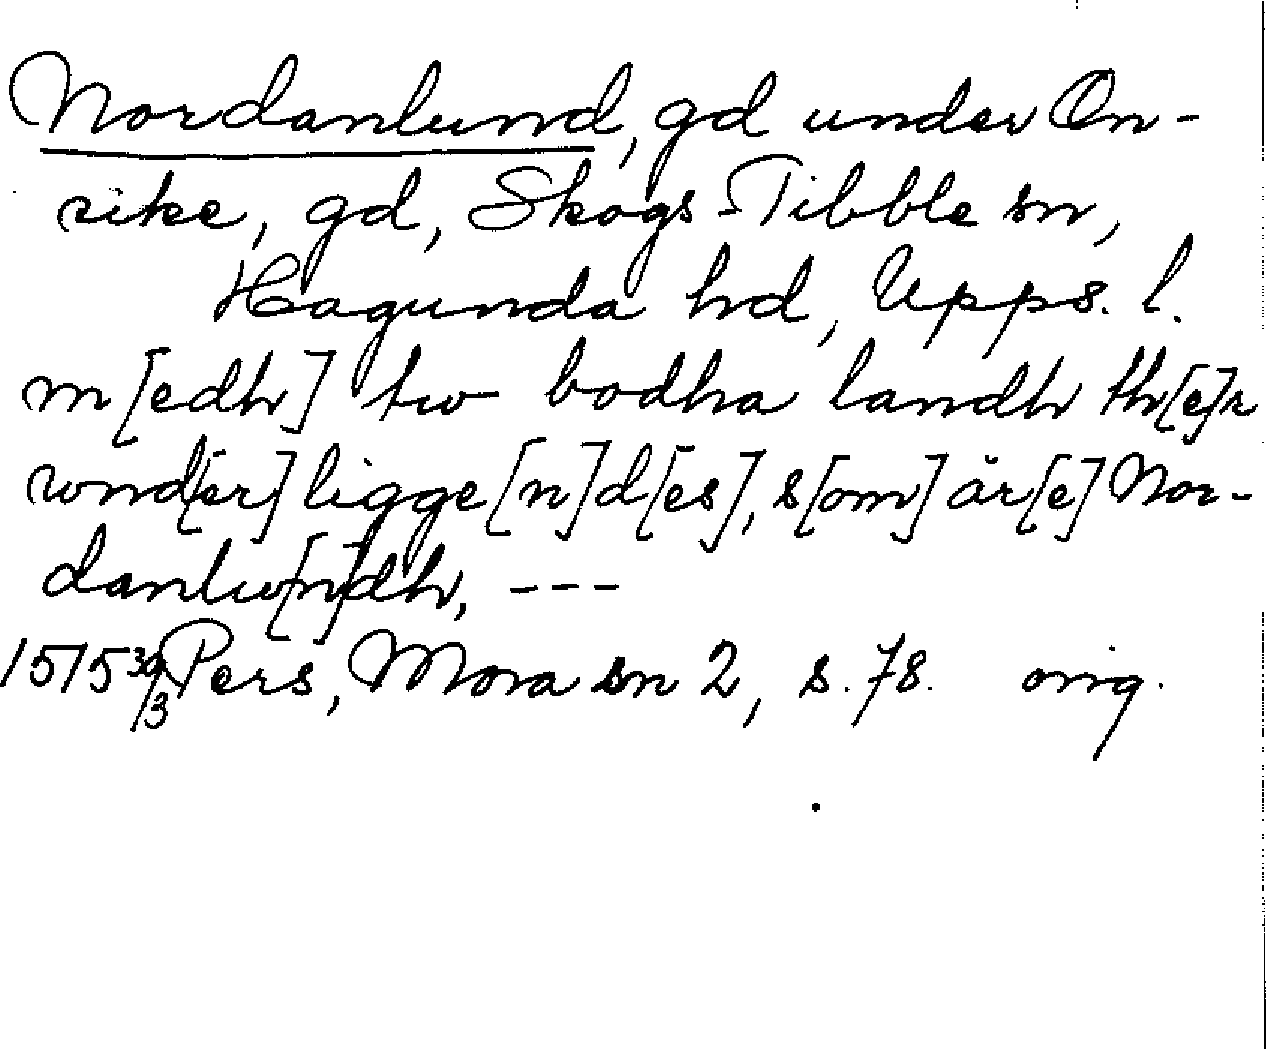 Nordanlund, gd under Ön-
rike, gd, Skogs-Tibble sn,
Hagunda hd, Upps. l.
m[edh] tw bodha landh th[e]r
wnd[er] ligge[n]d[es], s[om] är[e] Nor-
danlw[n]dh, ---
1515 30/3 Pers, Mora sn 2, s. 78. orig.